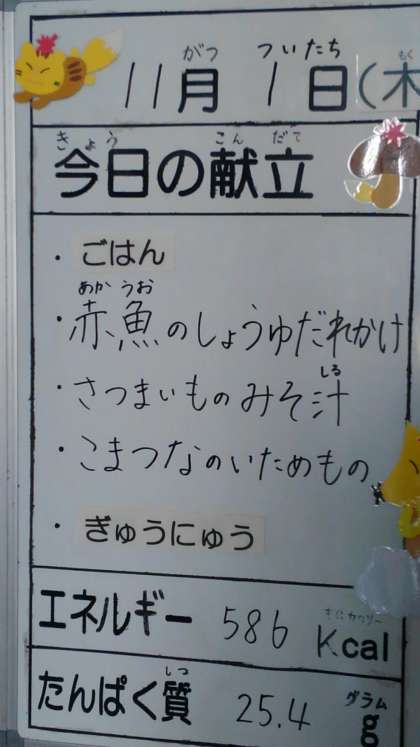 がつ ついたち もく
11月 1日(木
きょう こん だて
今日の献立
・ごはん
あか うお
・赤魚のしょうゆだれかけ
しる
・さつまいものみそ汁
・こまつなのいためもの
・ぎゅうにゅう
エネルギー 586 キロカロリー Kcal
しつ
たんぱく質 25.4 グラム g